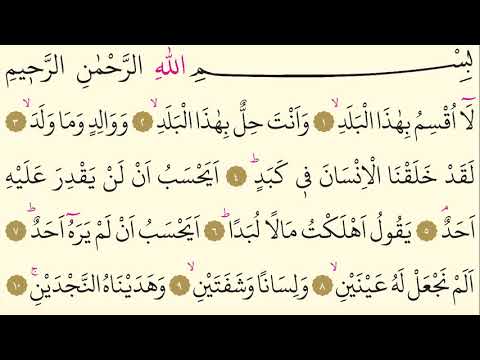 بِسْمِ اللّٰهِ الرَّحْمٰنِ الرَّح۪يمِ
لَٓا اُقْسِمُ بِهٰذَا الْبَلَدِۙ ﴿١﴾ وَاَنْتَ حِلٌّ بِهٰذَا الْبَلَدِۙ ﴿٢﴾ وَوَالِدٍ وَمَا وَلَدَۙ ﴿٣﴾
لَقَدْ خَلَقْنَا الْاِنْسَانَ ف۪ي كَبَدٍۜ ﴿٤﴾ اَيَحْسَبُ اَنْ لَنْ يَقْدِرَ عَلَيْهِ
اَحَدٌۢ ﴿٥﴾ يَقُولُ اَهْلَكْتُ مَالًا لُبَدًاۜ ﴿٦﴾ اَيَحْسَبُ اَنْ لَمْ يَرَهُٓ اَحَدٌۜ ﴿٧﴾
اَلَمْ نَجْعَلْ لَهُ عَيْنَيْنِۙ ﴿٨﴾ وَلِسَانًا وَشَفَتَيْنِۙ ﴿٩﴾ وَهَدَيْنَاهُ النَّجْدَيْنِۚ ﴿١٠﴾